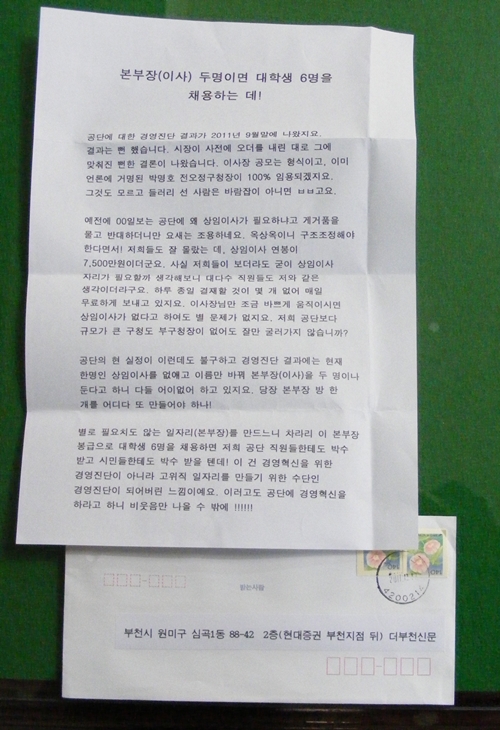 본부장(이사) 두명이면 대학생 6명을
채용하는 데!
공단에 대한 경영진단 결과가 2011년 9월말에 나왔지요.
결과는 뻔 했습니다. 시장이 사전에 오더를 내린 대로 그에
맞춰진 뻔한 결론이 나왔습니다. 이사장 공모는 형식이고, 이미
언론에 거명된 박명호 전오정구청장이 100% 임용되겠지요.
그것도 모르고 들러리 선 사람은 바람잡이 아니면 ㅂㅂ고요.
예전에 00일보는 공단에 왜 상임이사가 필요하냐고 게거품을
물고 반대하더니만 요새는 조용하네요. 옥상옥이니 구조조정해야
한다면서! 저희들도 잘 몰랐는 데, 상임이사 연봉이
7,500만원이더군요. 사실 저희들이 보더라도 굳이 상임이사
자리가 필요할까 생각해보니 대다수 직원들도 저와 같은
생각이더라구요. 하루 종일 결재할 것이 몇 개 없어 매일
무료하게 보내고 있지요. 이사장님만 조금 바쁘게 움직이시면
상임이사가 없다고 하여도 별 문제가 없지요. 저희 공단보다
규모가 큰 구청도 부구청장이 없어도 잘만 굴러가지 않습니까?
공단의 현 실정이 이런데도 불구하고 경영진단 결과에는 현재
한명인 상임이사를 없애고 이름만 바꿔 본부장(이사)을 두 명이나
둔다고 하니 다들 어이없어 하고 있지요. 당장 본부장 방 한
개를 어디다 또 만들어야 하나!
별로 필요치도 않는 일자리(본부장)를 만드느니 차라리 이 본부장
봉급으로 대학생 6명을 채용하면 저희 공단 직원들한테도 박수
받고 시민들한테도 박수 받을 텐데! 이 건 경영혁신을 위한
경영진단이 아니라 고위직 일자리를 만들기 위한 수단인
경영진단이 되어버린 느낌이예요. 이러고도 공단에 경영혁신을
하라고 하니 비웃음만 나올 수 밖에 !!!!!!
받는사람
부천시 원미구 심곡1동 88-42 2층(현대증권 부천지점 뒤) 더부천신문